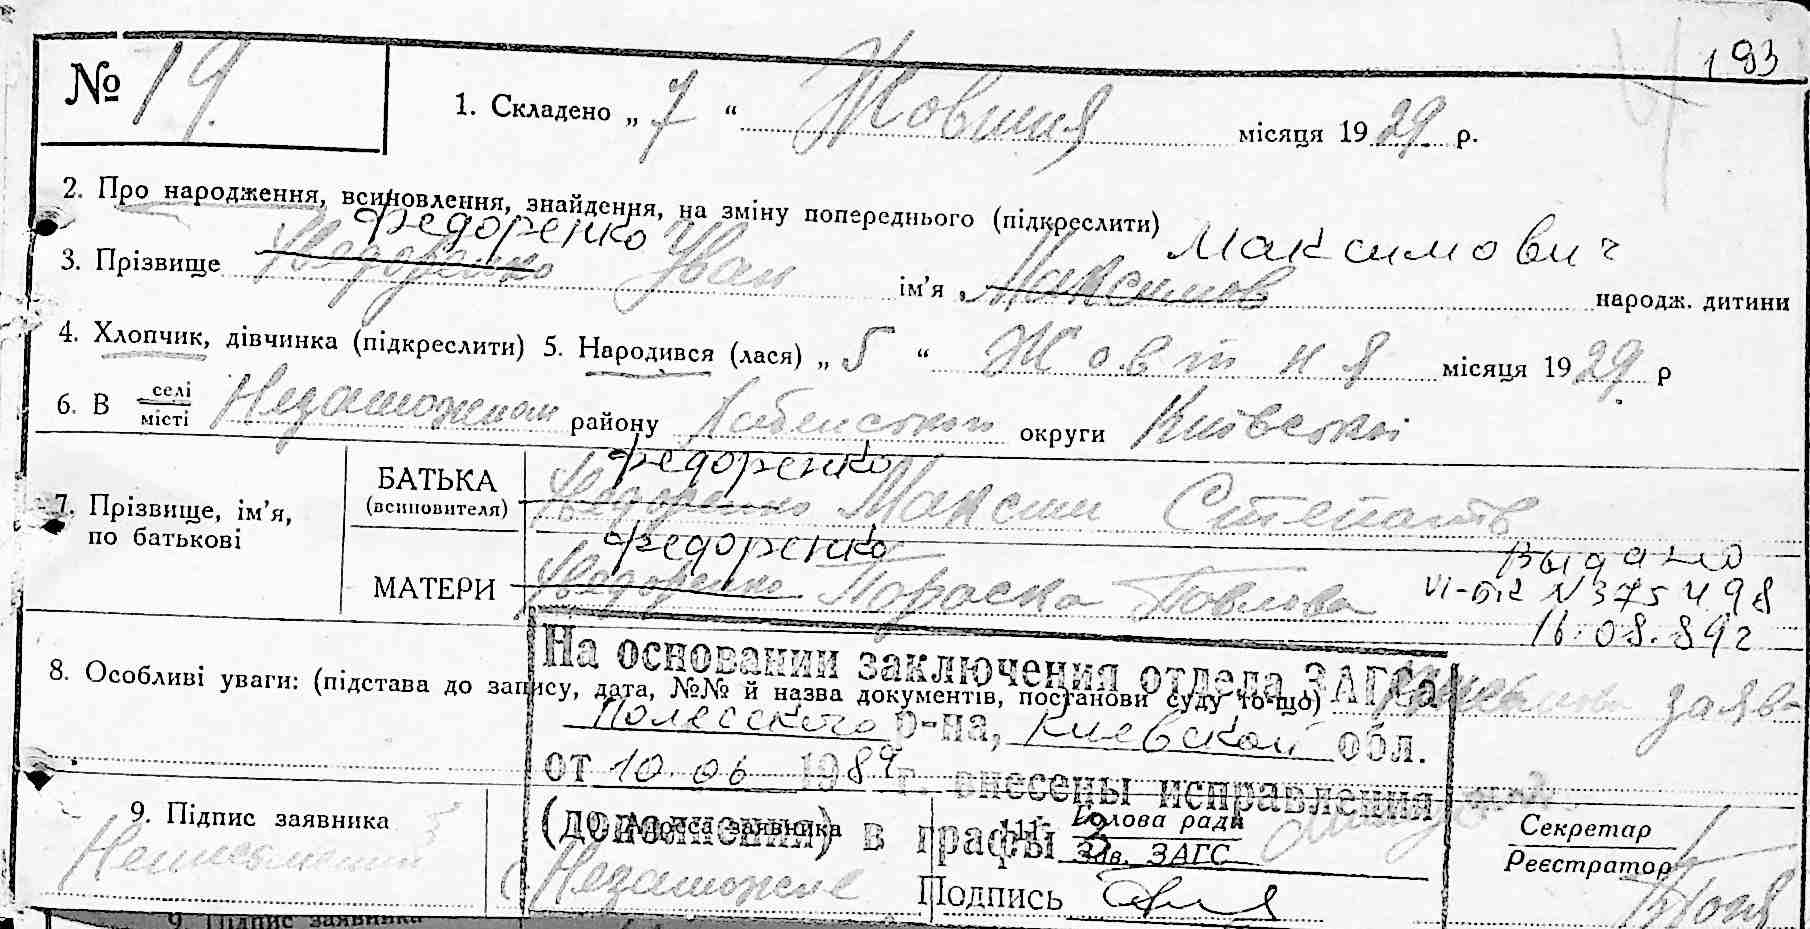 193
№ 19.
1. Складено „ 7 “ Жовтня місяця 1929 р.
2. Про народження, всиновлення, знайдення, на зміну попереднього (підкреслити)
Федоренко Максимович
3. Прізвище Хведоренко Іван ім’я Максимов народж. дитини
4. Хлопчик, дівчинка (підкреслити) 5. Народився (лася) „ 5 “ Жовтня місяця 1929 р
6. В селі/місті Незаможном району округи Київської
Федоренко
7. Прізвище, ім’я, по батькові
БАТЬКА (всиновителя) Хведоренко Максим Степанов
Федоренко
МАТЕРИ Хведоренко Параска Павлова
Выдано
VI-БК N 375498
16.08.89г
8. Особливі уваги: (підстава до запису, дата, №№ й назва документів, постанови суду то-що) заяв-
На основании заключения отдела ЗАГСа
Полесского р-на, Киевской обл.
от 10.06 1989 г. внесены исправления
(дополнения) в графы 3
Подпись
9. Підпис заявника
Неписьменний
Адреса заявника
Незаможне
11. Голова ради
Зав. ЗАГС
Секретар
Реєстратор
9. Підпис заявника